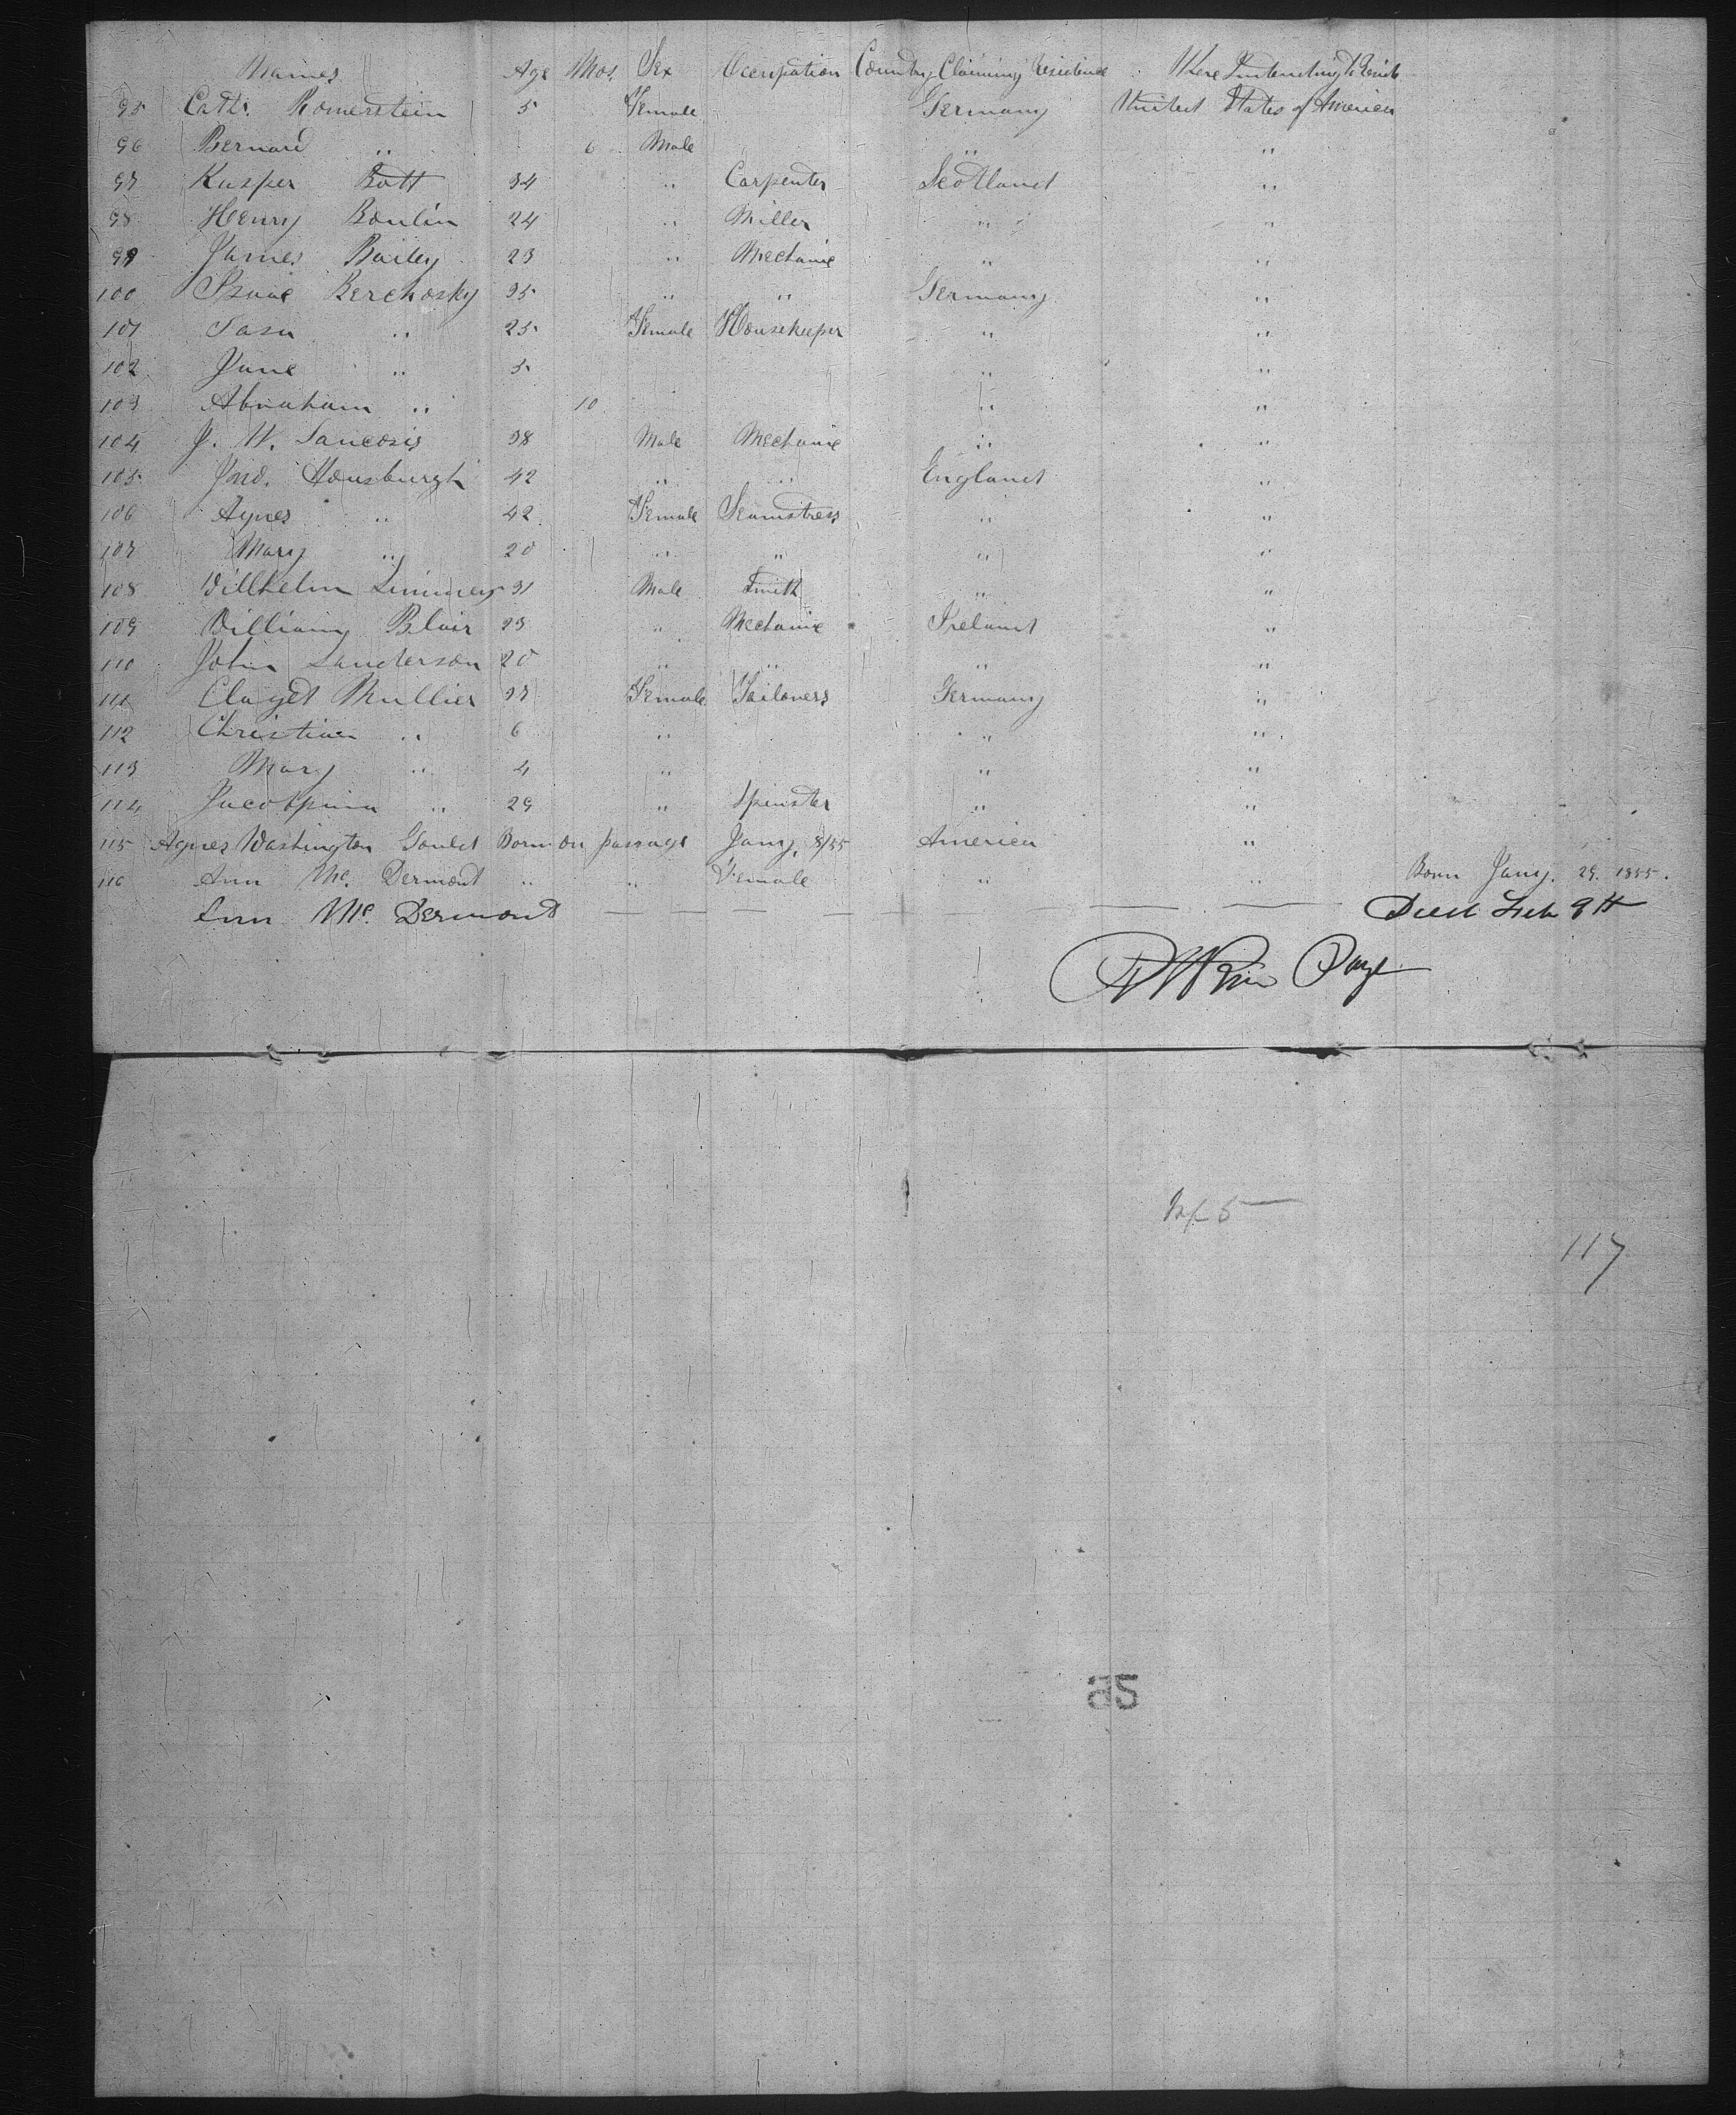 Names Age Mos. Sex Occupation Country Claiming Residence Where Intending to Reside
95 Cath. Romerstein 5 Female Germany United States of America
96 Bernard " 6 Male " "
97 Kasper Bott 34 " Carpenter Scotland "
98 Henry Boulin 24 " Miller " "
99 James Bailey 23 " Mechanic " "
100 Isaac Berchosky 35 " " Germany "
101 " 25 Female Housekeeper " "
102 Jane " 5 " "
103 Abraham " 10 " "
104 J. W. 38 Male Mechanic " "
105 Jno. Housburgh 42 " " England "
106 Agnes " 42 Female Seamstress " "
107 Mary " 20 " " " "
108 Willhelm 31 Male Smith " "
109 William Blair 23 " Mechanic Ireland "
110 John Sanderson 20 " " " "
111 Mullier 37 Female Tailoress Germany "
112 Christian " 6 " " "
113 Mary " 4 " " "
114 Jacobpina " 29 " Spinster " "
115 Agnes Washington Born on passage Jany. 8/55 America "
116 Ann Mc. Dermont " " Female " " Born Jany. 29. 1855.
Ann Mc. Dermont — — — — — — — Died Feb 9th
5
117
25